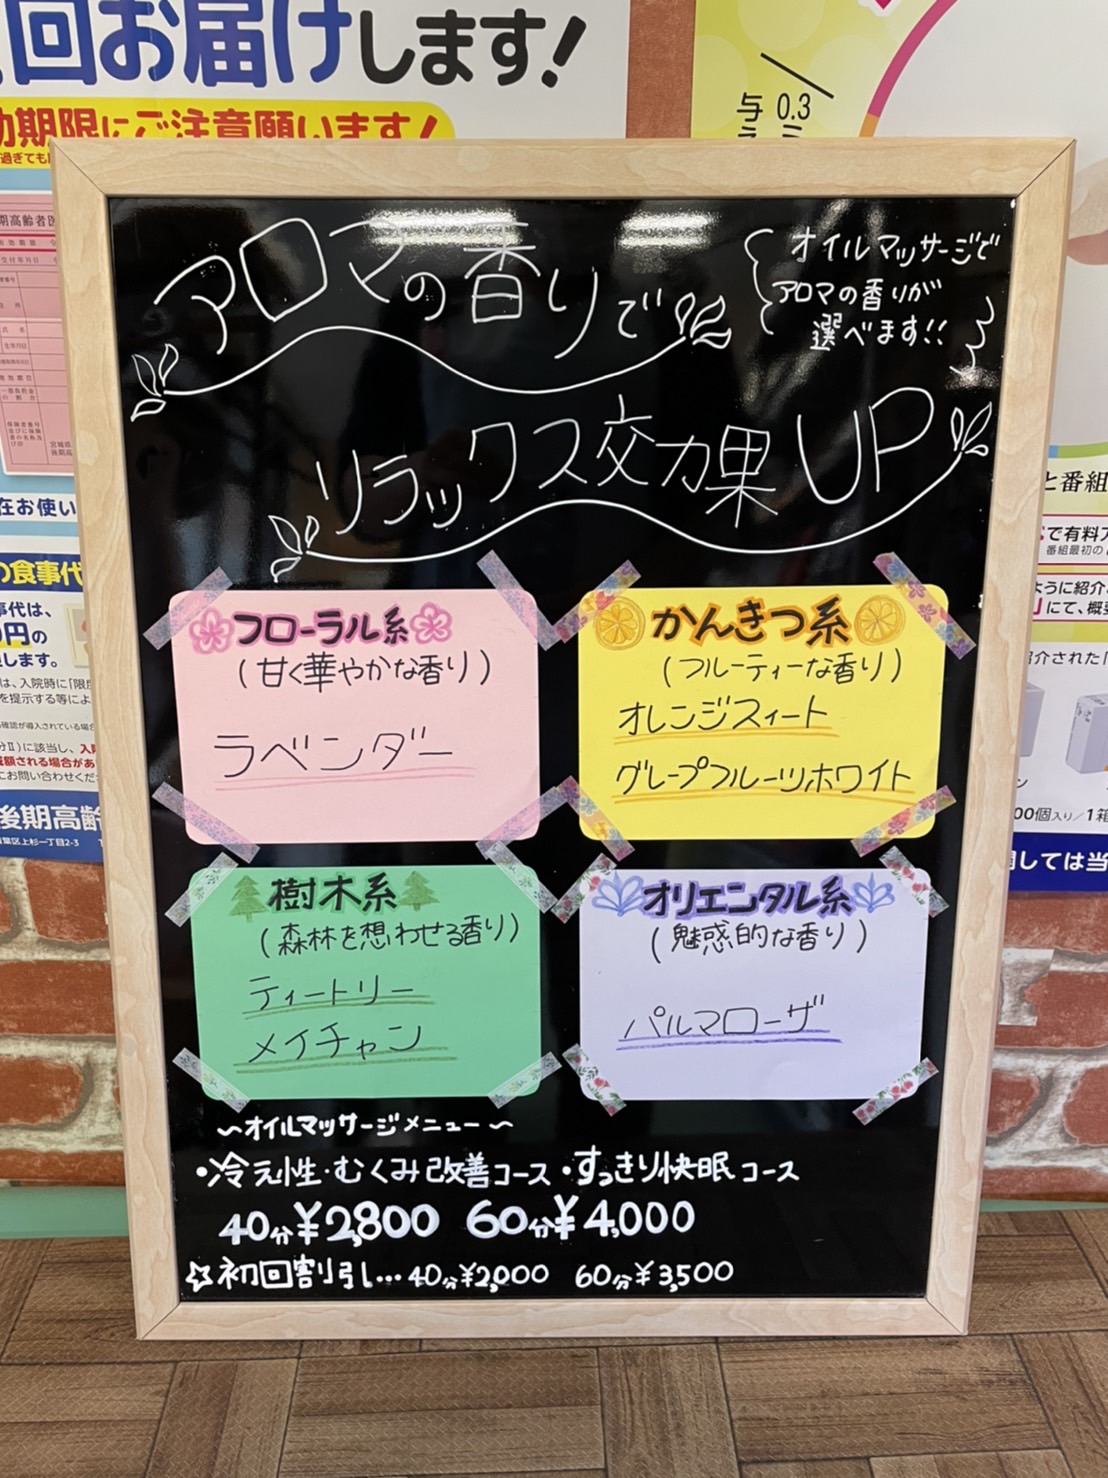 回お届けします!
効期限にご注意願います!
与 0.3
アロマの香りで
オイルマッサージで
アロマの香りが
選べます!!
リラックス効果UP
フローラル系
(甘く華やかな香り)
ラベンダー
かんきつ系
(フルーティーな香り)
オレンジスィート
グレープフルーツホワイト
樹木系
(森林を想わせる香り)
ティートリー
メイチャン
オリエンタル系
(魅惑的な香り)
パルマローザ
~オイルマッサージメニュー~
・冷え性・むくみ改善コース・すっきり快眠コース
40分¥2,800 60分¥4,000
☆初回割引し…40分¥2,000 60分¥3,500
在お使い
の食事代
事代は、
円の
します。
後期高齢
葉区上杉一丁目2-3
と番組
で有料
番組最初の
ように紹介
にて、概要
紹介された「
00個入り/1箱
しては当